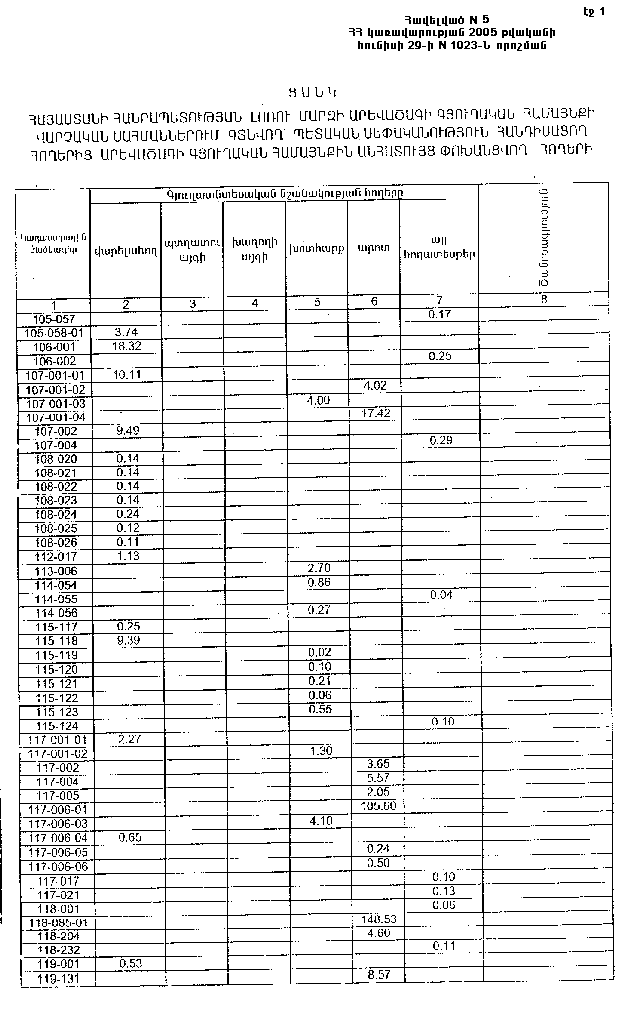 Էջ 1
Հավելված N 5
ՀՀ կառավարության 2005 թվականի
հունիսի 29-ի N 1023-Ն որոշման
ՑԱՆԿ
ՀԱՅԱՍՏԱՆԻ ՀԱՆՐԱՊԵՏՈՒԹՅԱՆ ԼՈՌՈՒ ՄԱՐԶԻ ԱՐԵՎԱԾԱԳԻ ԳՅՈՒՂԱԿԱՆ ՀԱՄԱՅՆՔԻ
ՎԱՐՉԱԿԱՆ ՍԱՀՄԱՆՆԵՐՈՒՄ ԳՏՆՎՈՂ ՊԵՏԱԿԱՆ ՍԵՓԱԿԱՆՈՒԹՅՈՒՆ ՀԱՆԴԻՍԱՑՈՂ
ՀՈՂԵՐԻՑ ԱՐԵՎԱԾԱԳԻ ԳՅՈՒՂԱԿԱՆ ՀԱՄԱՅՆՔԻՆ ԱՆՀԱՏՈՒՅՑ ՓՈԽԱՆՑՎՈՂ ՀՈՂԵՐԻ
Գյուղատնտեսական նշանակության հողերը
Կադաստրային ծածկագիր վարելահող պտղատու այգի խաղողի այգի խոտհարք արոտ այլ հողատեսքեր
1 2 3 4 5 6 7 8
105-057 0.17
105-058-01 3.74
106-001 18.32
106-002 0.25
107-001-01 10.11
107-001-02 4.02
107-001-03 4.00
107-001-04 17.42
107-002 9.49
107-004 0.29
108-020 0.14
108-021 0.14
108-022 0.14
108-023 0.14
108-024 0.24
108-025 0.12
108-026 0.11
112-017 1.13
113-006 2.70
114-054 0.86
114-055 0.04
114-056 0.27
115-117 0.25
115-118 9.39
115-119 0.02
115-120 0.10
115-121 0.21
115-122 0.06
115-123 0.55
115-124 0.10
117-001-01 2.27
117-001-02 1.30
117-002 3.65
117-004 5.57
117-005 2.05
117-006-01 105.60
117-006-03 4.10
117-006-04 0.65
117-006-05 0.24
117-006-06 0.50
117-017 0.10
117-021 0.13
118-001 0.06
118-085-01 148.53
118-204 4.60
118-232 0.11
119-001 0.53
119-131 8.57